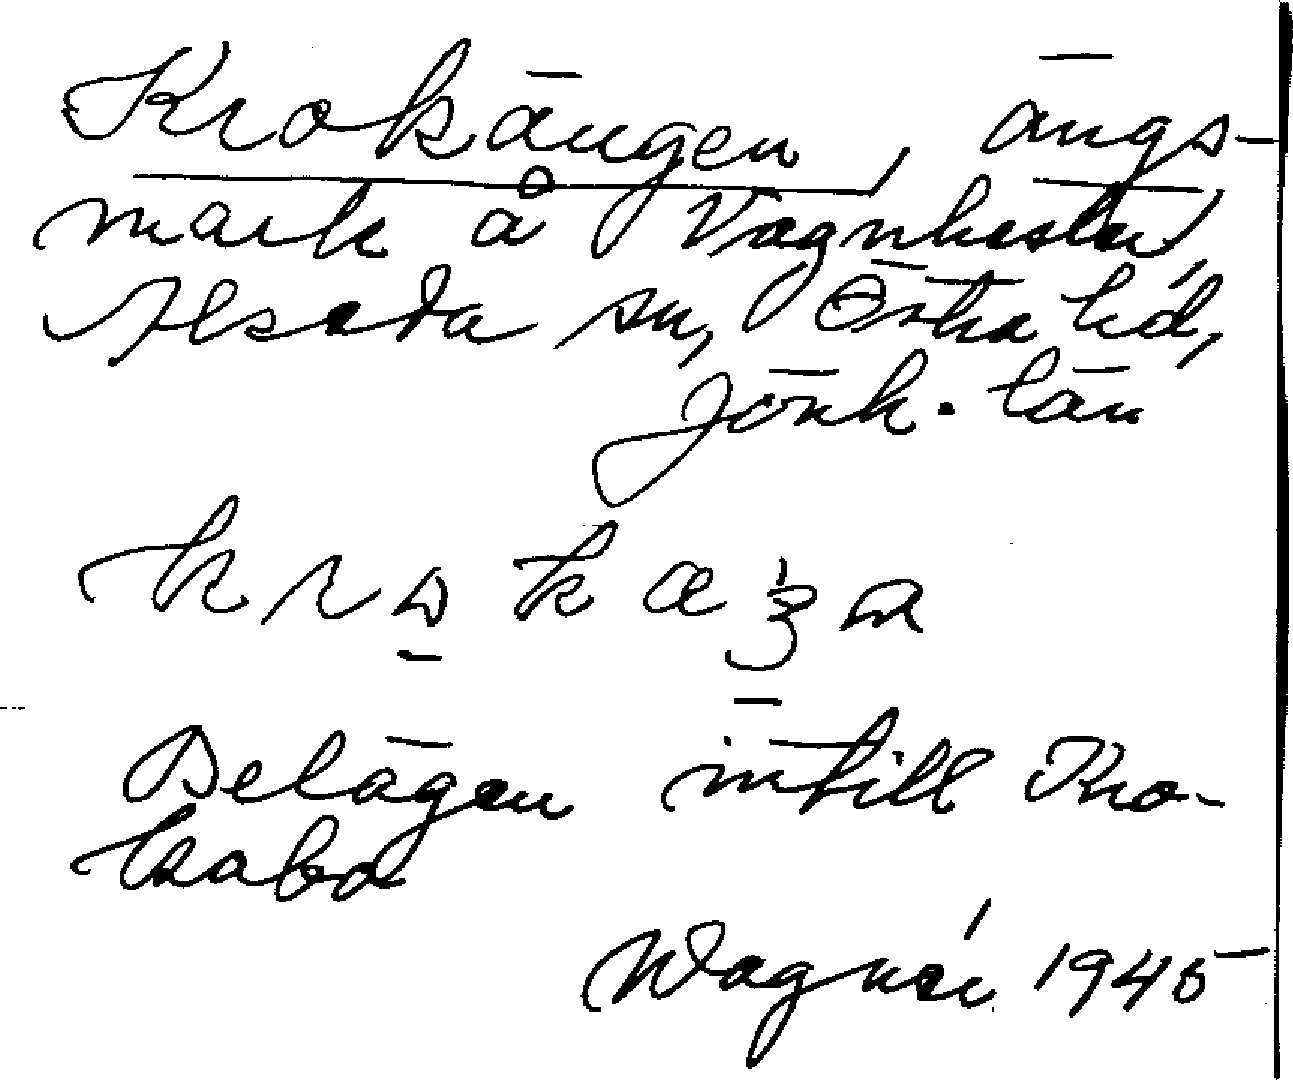 Krokängen, ängs-
mark å Vagnhester,
Alseda sn, Östra hd,
Jönk. län
Belägen intill Kro-
kabo
Wagnér 1945